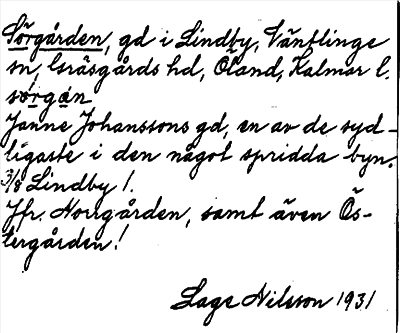 Sörgården, gd i Lindby, Ventlinge
sn, Gräsgårds hd, Öland, Kalmar l.
sörgan
Janne Johanssons gd, en av de syd-
ligaste i den något spridda byn.
3/8 Lindby 1.
Jfr. Norrgården, samt även Ös-
tergården!
Lage Nilsson 1931